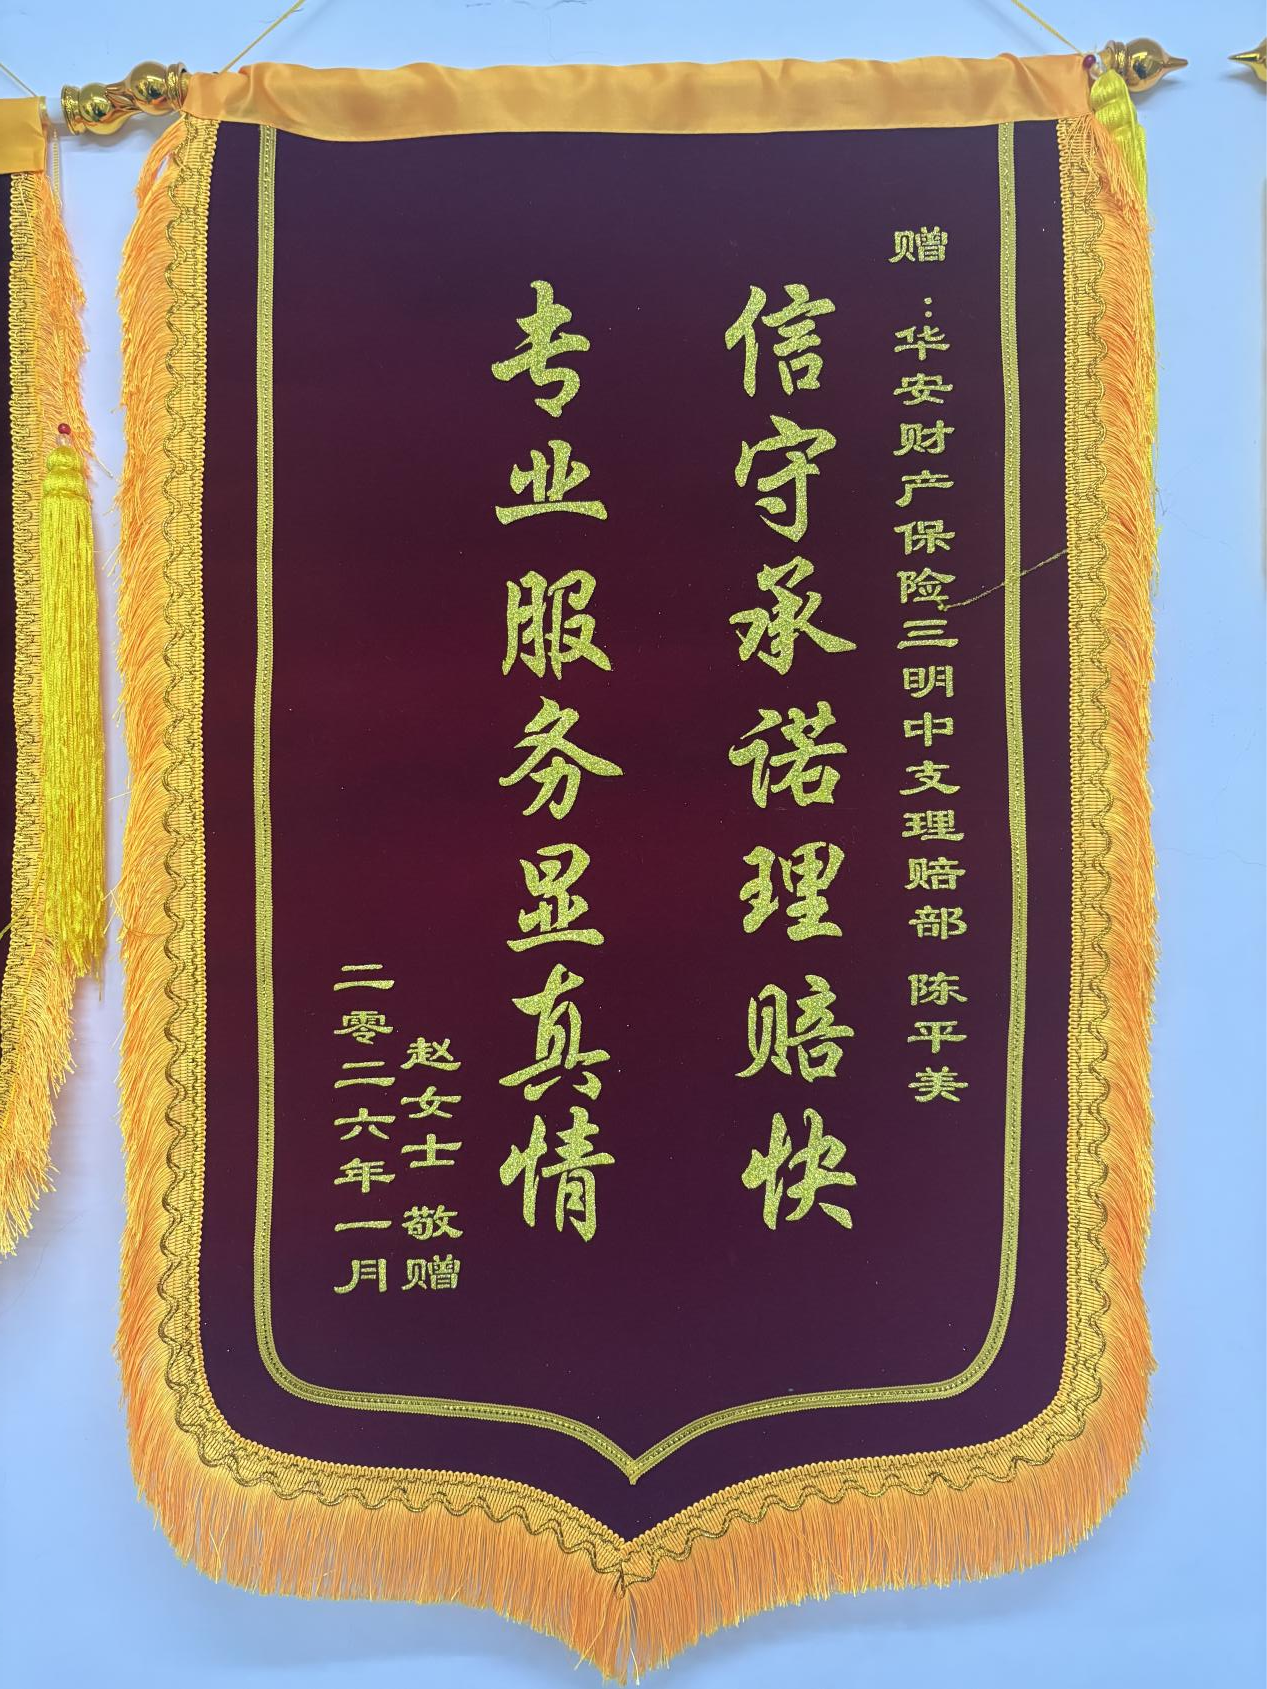 赠：华安财产保险三明中支理赔部 陈平美
信守承诺理赔快
专业服务显真情
赵女士 敬赠
二零二六年一月